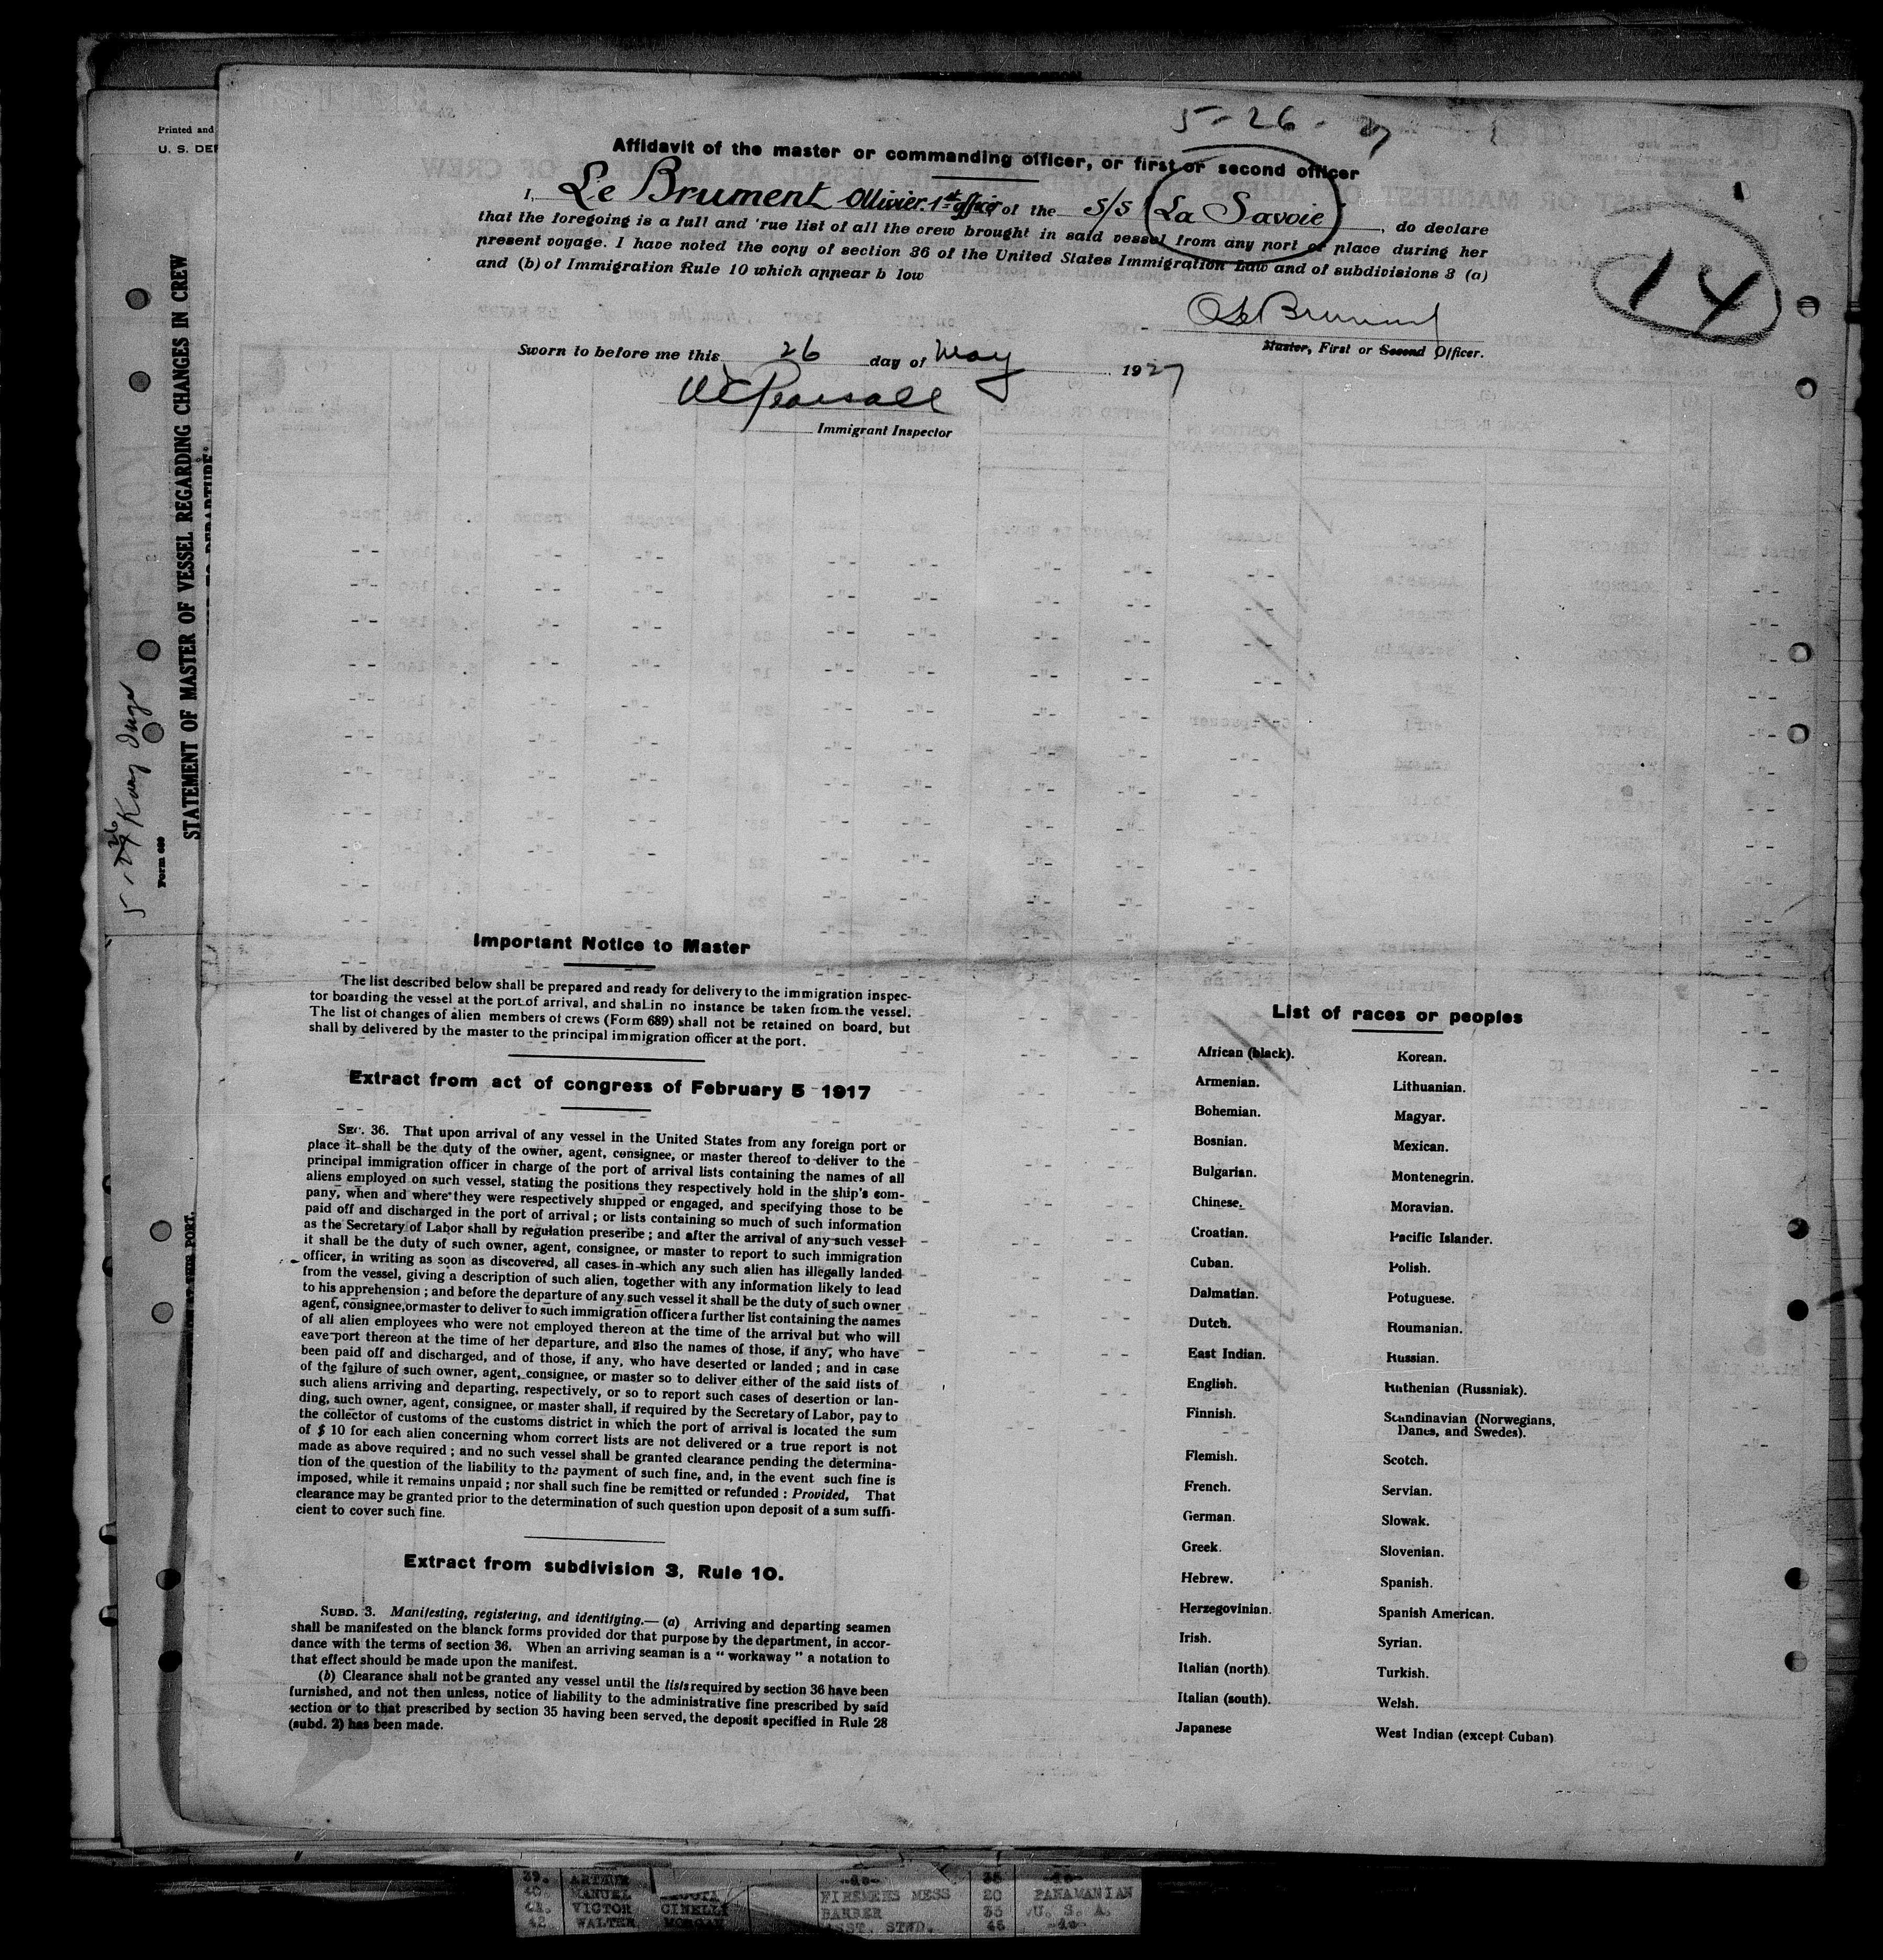 5-26-27
Affidavit of the master or commanding officer, or first or second officer
I, Le Brument Ollivier 1st officer of the S/S La Savoie, do declare
that the foregoing is a full and 'rue list of all the crew brought in said vessel from any port or place during her
present voyage. I have noted the copy of section 36 of the United States Immigration Law and of subdivisions 3 (a)
and (b) of Immigration Rule 10 which appear b low
14
O Le Brument
Master, First or Second Officer.
Sworn to before me this 26 day of May 1927
Pearsall
Immigrant Inspector
Printed and
U. S. DEP
STATEMENT OF MASTER OF VESSEL REGARDING CHANGES IN CREW
TO DEPARTURE
Form 689
AT THIS PORT.
Important Notice to Master
The list described below shall be prepared and ready for delivery to the immigration inspec-
tor boarding the vessel at the port of arrival, and shal in no instance be taken from the vessel.
The list of changes of alien members of crews (Form 689) shall not be retained on board, but
shall by delivered by the master to the principal immigration officer at the port.
Extract from act of congress of February 5 1917
SEC. 36. That upon arrival of any vessel in the United States from any foreign port or
place it shall be the duty of the owner, agent, consignee, or master thereof to deliver to the
principal immigration officer in charge of the port of arrival lists containing the names of all
aliens employed on such vessel, stating the positions they respectively hold in the ship's com-
pany, when and where they were respectively shipped or engaged, and specifying those to be
paid off and discharged in the port of arrival ; or lists containing so much of such information
as the Secretary of Labor shall by regulation preseribe ; and after the arrival of any such vessel
it shall be the duty of such owner, agent, consignee, or master to report to such immigration
officer, in writing as soon as discovered, all cases in which any such alien has illegally landed
from the vessel, giving a description of such alien, together with any information likely to lead
to his apprehension ; and before the departure of any such vessel it shall be the duty of such owner
agent, consignee, or master to deliver to such immigration officer a further list containing the names
of all alien employees who were not employed thereon at the time of the arrival but who will
eave port thereon at the time of her departure, and also the names of those, if any, who have
been paid off and discharged, and of those, if any, who have deserted or landed ; and in case
of the failure of such owner, agent, consignee, or master so to deliver either of the said lists of
such aliens arriving and departing, respectively, or so to report such cases of desertion or lan-
ding, such owner, agent, consignee, or master shall, if required by the Secretary of Labor, pay to
the collector of customs of the customs district in which the port of arrival is located the sum
of $ 10 for each alien concerning whom correct lists are not delivered or a true report is not
made as above required ; and no such vessel shall be granted clearance pending the determina-
tion of the question of the liability to the payment of such fine, and, in the event such fine is
imposed, while it remains unpaid ; nor shall such fine be remitted or refunded : Provided, That
clearance may be granted prior to the determination of such question upon deposit of a sum suffi-
cient to cover such fine.
Extract from subdivision 3, Rule 10.
SUBD. 3. Manifesting, registering, and identifying.— (a) Arriving and departing seamen
shall be manifested on the blanck forms provided dor that purpose by the department, in accor-
dance with the terms of section 36. When an arriving seaman is a " workaway " a notation to
that effect should be made upon the manifest.
(b) Clearance shall not be granted any vessel until the lists required by section 36 have been
furnished, and not then unless, notice of liability to the administrative fine prescribed by said
section or to that prescribed by section 35 having been served, the deposit specified in Rule 28
(subd. 2) has been made.
List of races or peoples
African (black).
Armenian.
Bohemian.
Bosnian.
Bulgarian.
Chinese.
Croatian.
Cuban.
Dalmatian.
Dutch.
East Indian.
English.
Finnish.
Flemish.
French.
German.
Greek.
Hebrew.
Herzegovinian.
Irish.
Italian (north).
Italian (south).
Japanese
Korean.
Lithuanian.
Magyar.
Mexican.
Montenegrin.
Moravian.
Pacific Islander.
Polish.
Potuguese.
Roumanian.
Russian.
Ruthenian (Russniak).
Scandinavian (Norwegians,
Danes, and Swedes).
Scotch.
Servian.
Slowak.
Slovenian.
Spanish.
Spanish American.
Syrian.
Turkish.
Welsh.
West Indian (except Cuban)
39. ARTHUR -do- 35 -do-
40. MANUEL FIREMENS MESS 20 PANAMANIAN
41. VICTOR CINELLI BARBER 33 U. S. A.
42 WALTER MORGAN ASST. STWD. 46 -do-